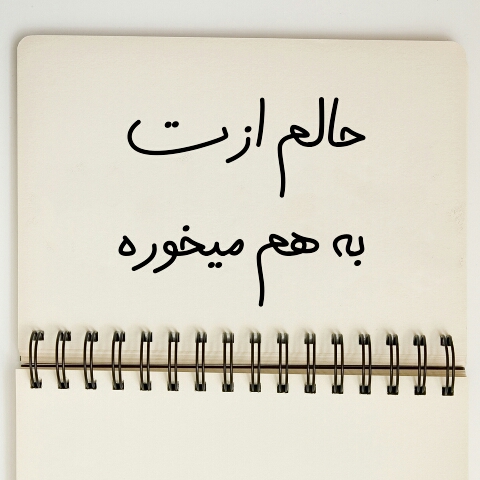 حالم ازت
به هم میخوره